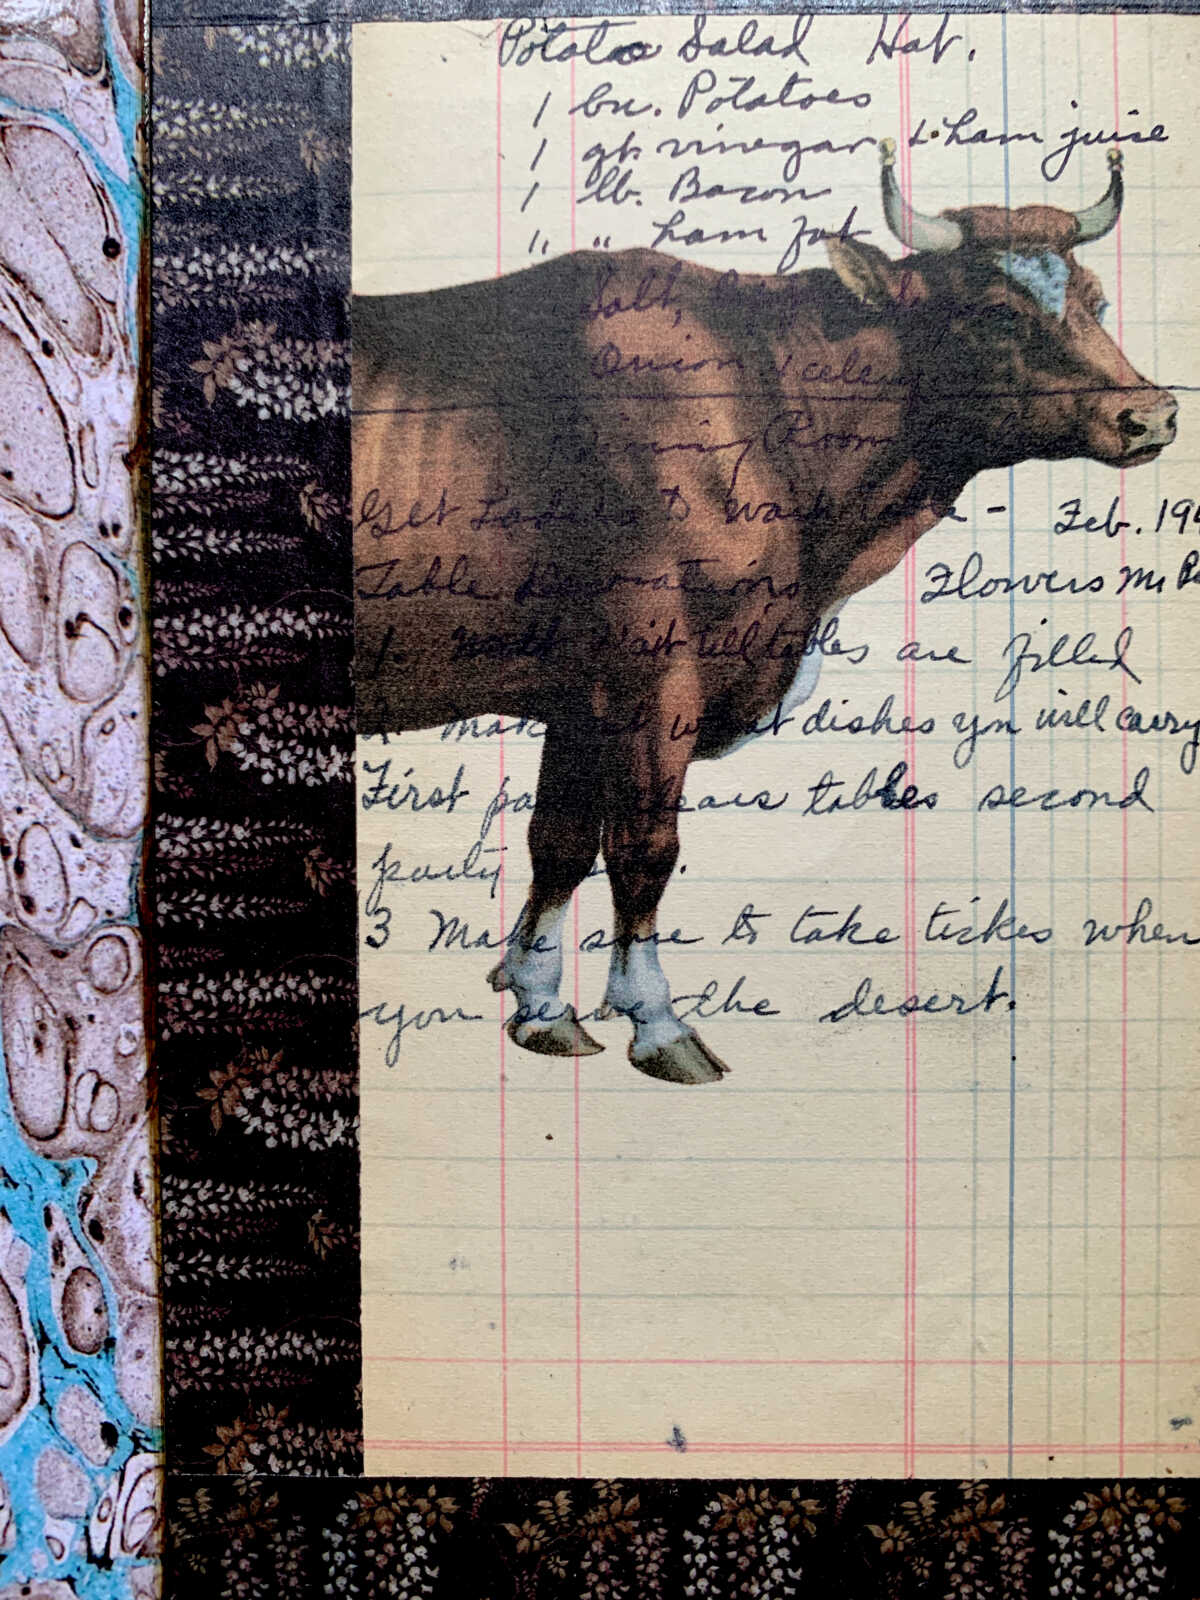 Potatoe Salad Hot.
1 bu. Potatoes
1 qt vinegar & ham juice
1 lb. Bacon
" " ham fat
Salt,
Onion & celery
Dining Room
Get Ladies to wait table - Feb. 19
Table Decorations Flowers Mr
1. wait till tables are filled
2. Make what dishes you will carry
First party clears tables second
party
3 Make sure to take tickes when
you serve the desert.